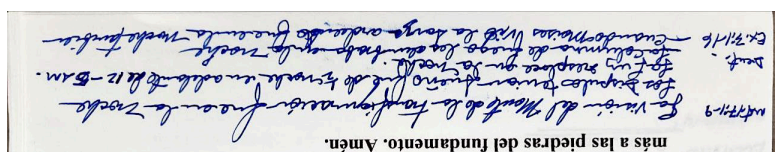 más a las piedras del fundamento. Amén.
Mt 17:1-9 La visión del Monte de la transfiguración fue en la noche
Los Discípulos tenían sueño fue de noche en adelante de 12-5 am.
La Luz resplace en la noche.
Deut. La columna de fuego los alumbraba en la noche
Ex. 3:1-16 - Cuando Moises vio la zarza ardiendo fue en la noche tambien